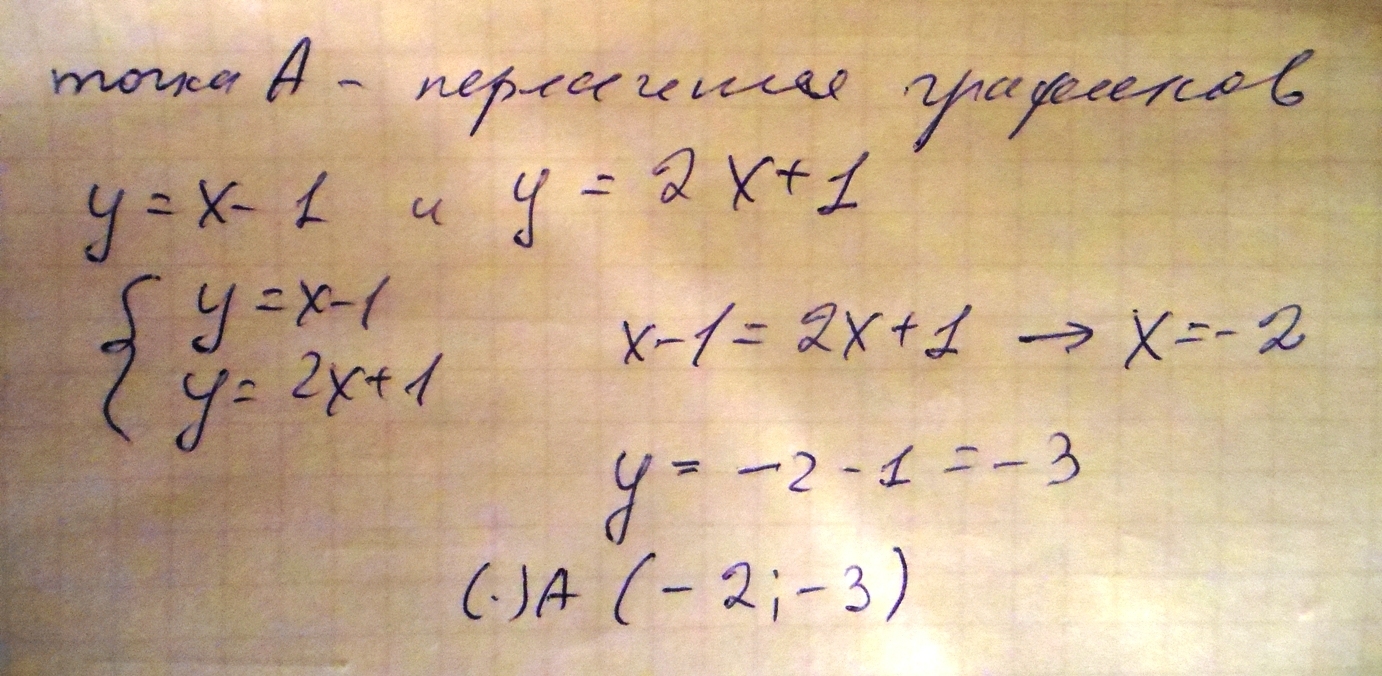 точка А - пересечения графиков
y = x - 1 и y = 2x + 1
{ y = x - 1
y = 2x + 1
x - 1 = 2x + 1 → x = - 2
y = - 2 - 1 = - 3
(.) A (- 2; - 3)